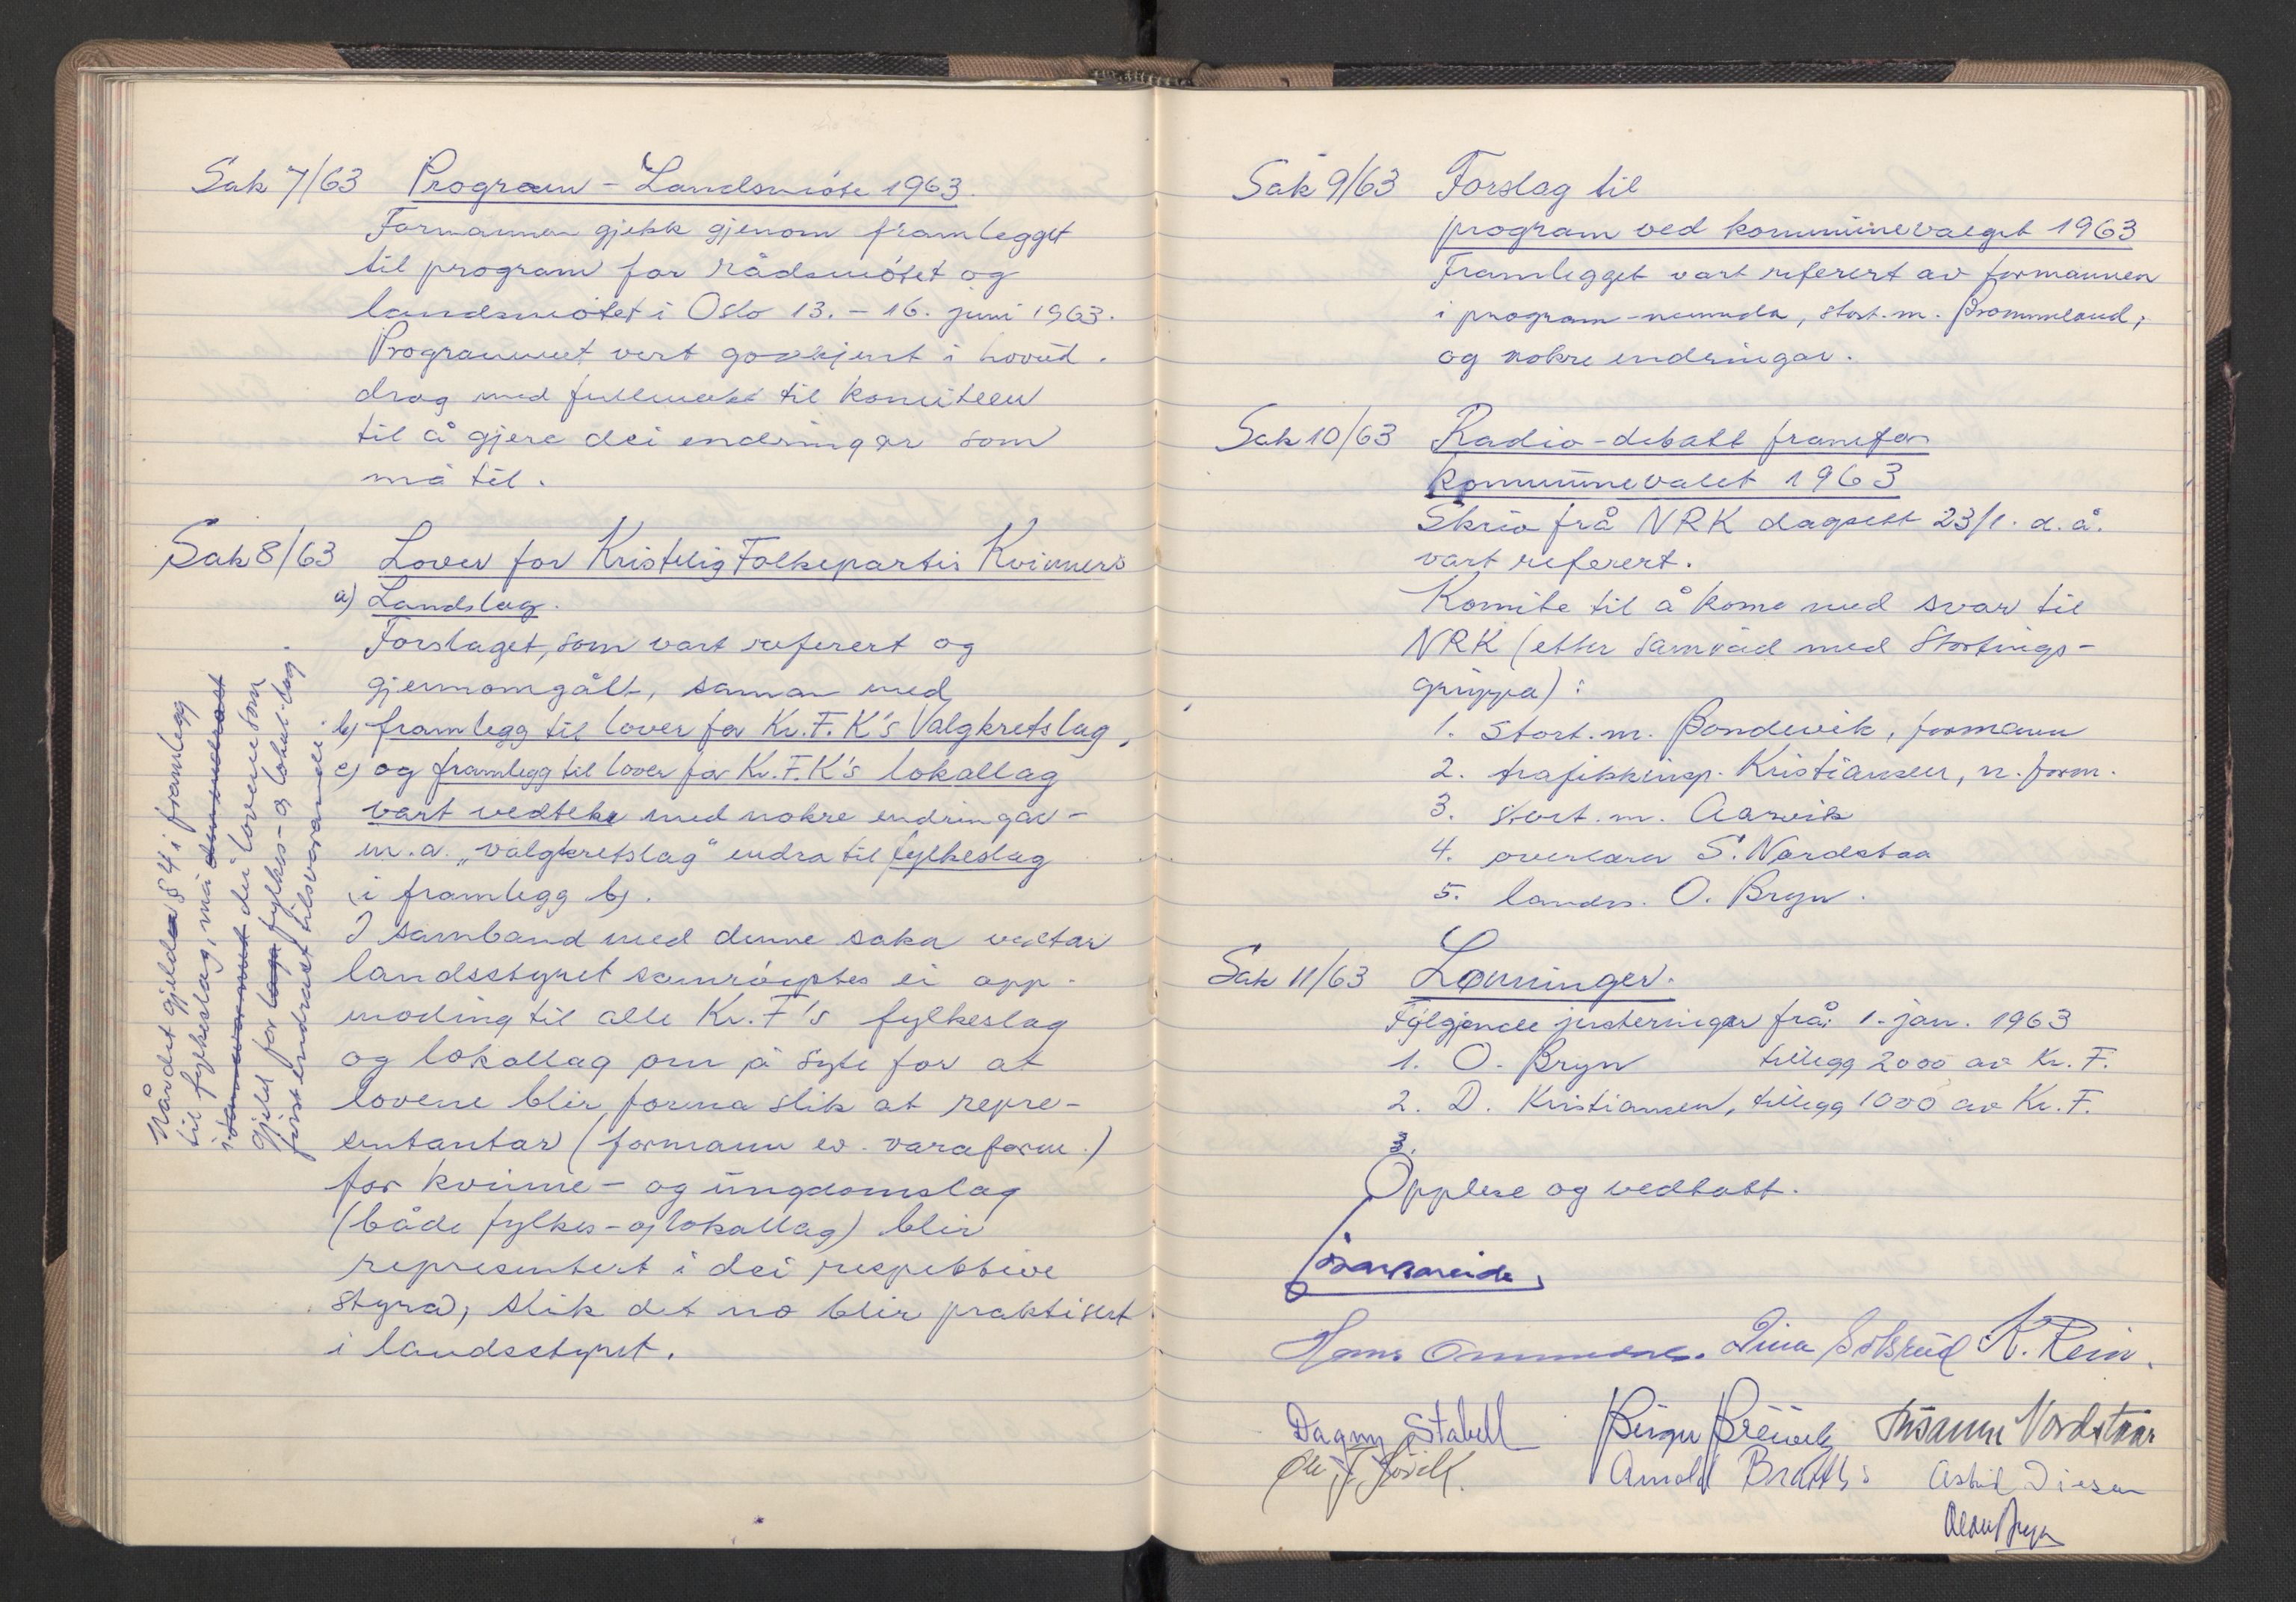 Sak 7/63 Program - Landsmøte 1963.
Formannen gjekk gjenom framlegget
til program for rådsmøtet og
landsmøtet i Oslo 13. - 16. juni 1963.
Programmet vert godkjent i hovud-
drag med fullmakt til komiteen
til å gjere dei endringar som
må til.
Sak 8/63 Lover for Kristelig Folkepartis Kvinners
a) Landslag.
Forslaget, som vart referert og
gjennomgått, saman med
b) framlegg til lover for Kr.F.K's Valgkretslag,
c) og framlegg til lover for Kr.F.K's lokallag
vart vedteke med nokre endringar -
m.a. „valgkretslag" endra til fylkeslag
i framlegg b).
I samband med denne saka vedtar
landsstyret samrøystes ei opp-
moding til alle Kr.F's fylkeslag
og lokallag om å syte for at
lovene blir forma slik at repre-
sentantar (formann ev. varaform.)
for kvinne- og ungdomslag
(både fylkes- og lokallag) blir
representert i dei respektive
styra, slik det no blir praktisert
i landsstyret.
Når det gjelda § 4 i framlegg
til fylkeslag, må
dei lovene som
gjeld for fylkes- og lokal-lag
først endrast tilsvarande.
Sak 9/63 Forslag til
program ved kommunevalget 1963
Framlegget vart referert av formannen
i program-nemnda, stort.m. Brommeland,
og nokre endringar.
Sak 10/63 Radio-debatt framfor
kommunevalet 1963
Skriv frå NRK dagsett 23/1. d.å.
vart referert.
Komite til å kome med svar til
NRK (etter samråd med Stortings-
gruppa):
1. Stort.m. Bondevik, formann
2. trafikkinsp. Kristiansen, n. form.
3. stort.m. Aarvik
4. overlærer S. Nordstaa
5. landss. O. Bryn.
Sak 11/63 Lønninger.
Følgjende justeringar frå 1. jan. 1963
1. O. Bryn tillegg 2000 av Kr.F.
2. D. Kristiansen, tillegg 1000 av Kr.F.
3.
Opplese og vedtatt.
Hans Ommedal. Dina Solsrud K. Rein.
Dagny Stabell Birger Breivik Nordstaa
Ole J. Arnold Astrid Diesen
Olav Bryn